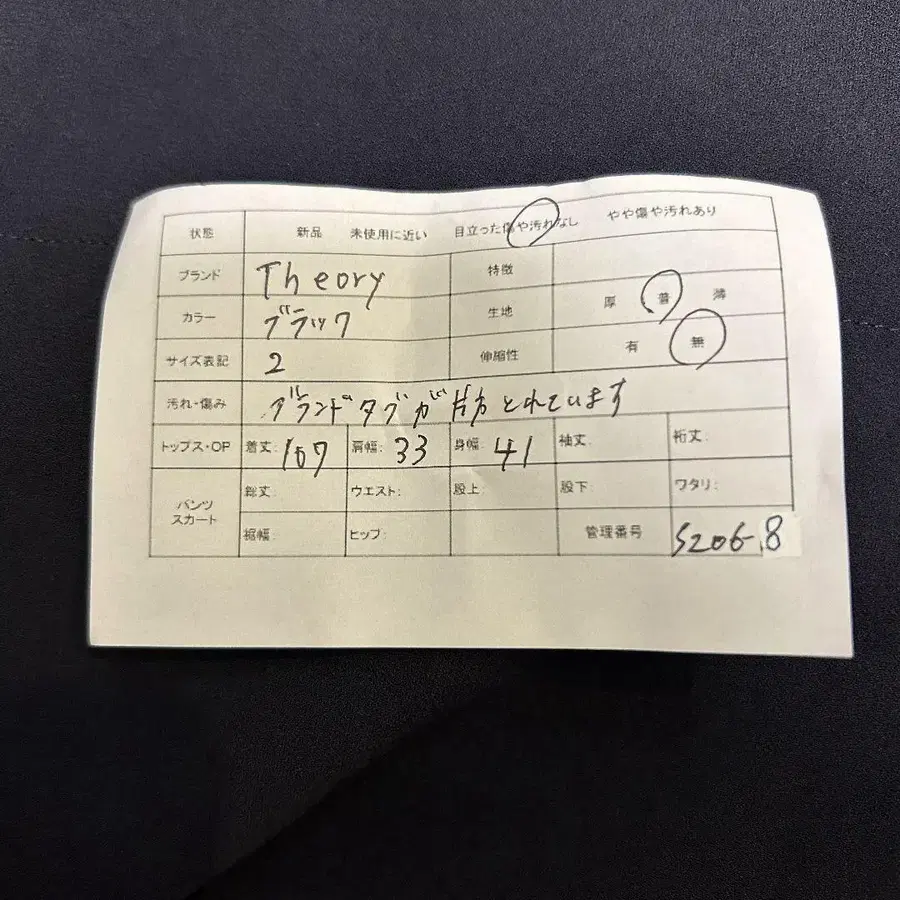 状態 新品 未使用に近い 目立った傷や汚れなし やや傷や汚れあり
ブランド Theory 特徴
カラー ブラック 生地 厚 普 薄
サイズ表記 2 伸縮性 有 無
汚れ・傷み ブランドタブが片方とれています
トップス・OP 着丈: 107 肩幅: 33 身幅: 41 袖丈: 裄丈:
パンツ スカート 総丈: ウエスト: 股上: 股下: ワタリ:
裾幅: ヒップ: 管理番号 S206-8